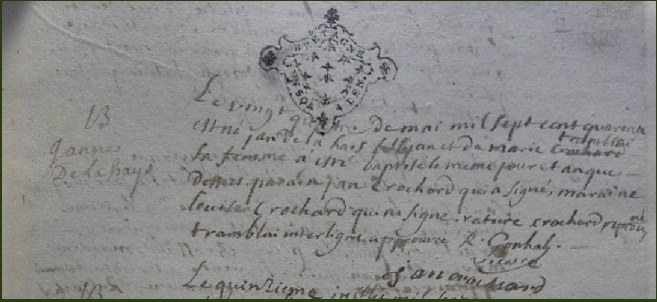 B
janne
De la haye
Le vingt De mai mil sept cent quarente
est né jan de la haie fils jan et de marie tramblai
crochard
sa femme a esté baptisé le même jour et an que
dessus parain jan Crochard qui a signé, maraine
louise Crochard qui ne signe. rature crochard
tramblai interligne approuvé R.
vicaire
jan crochard
B
Le quinzieme